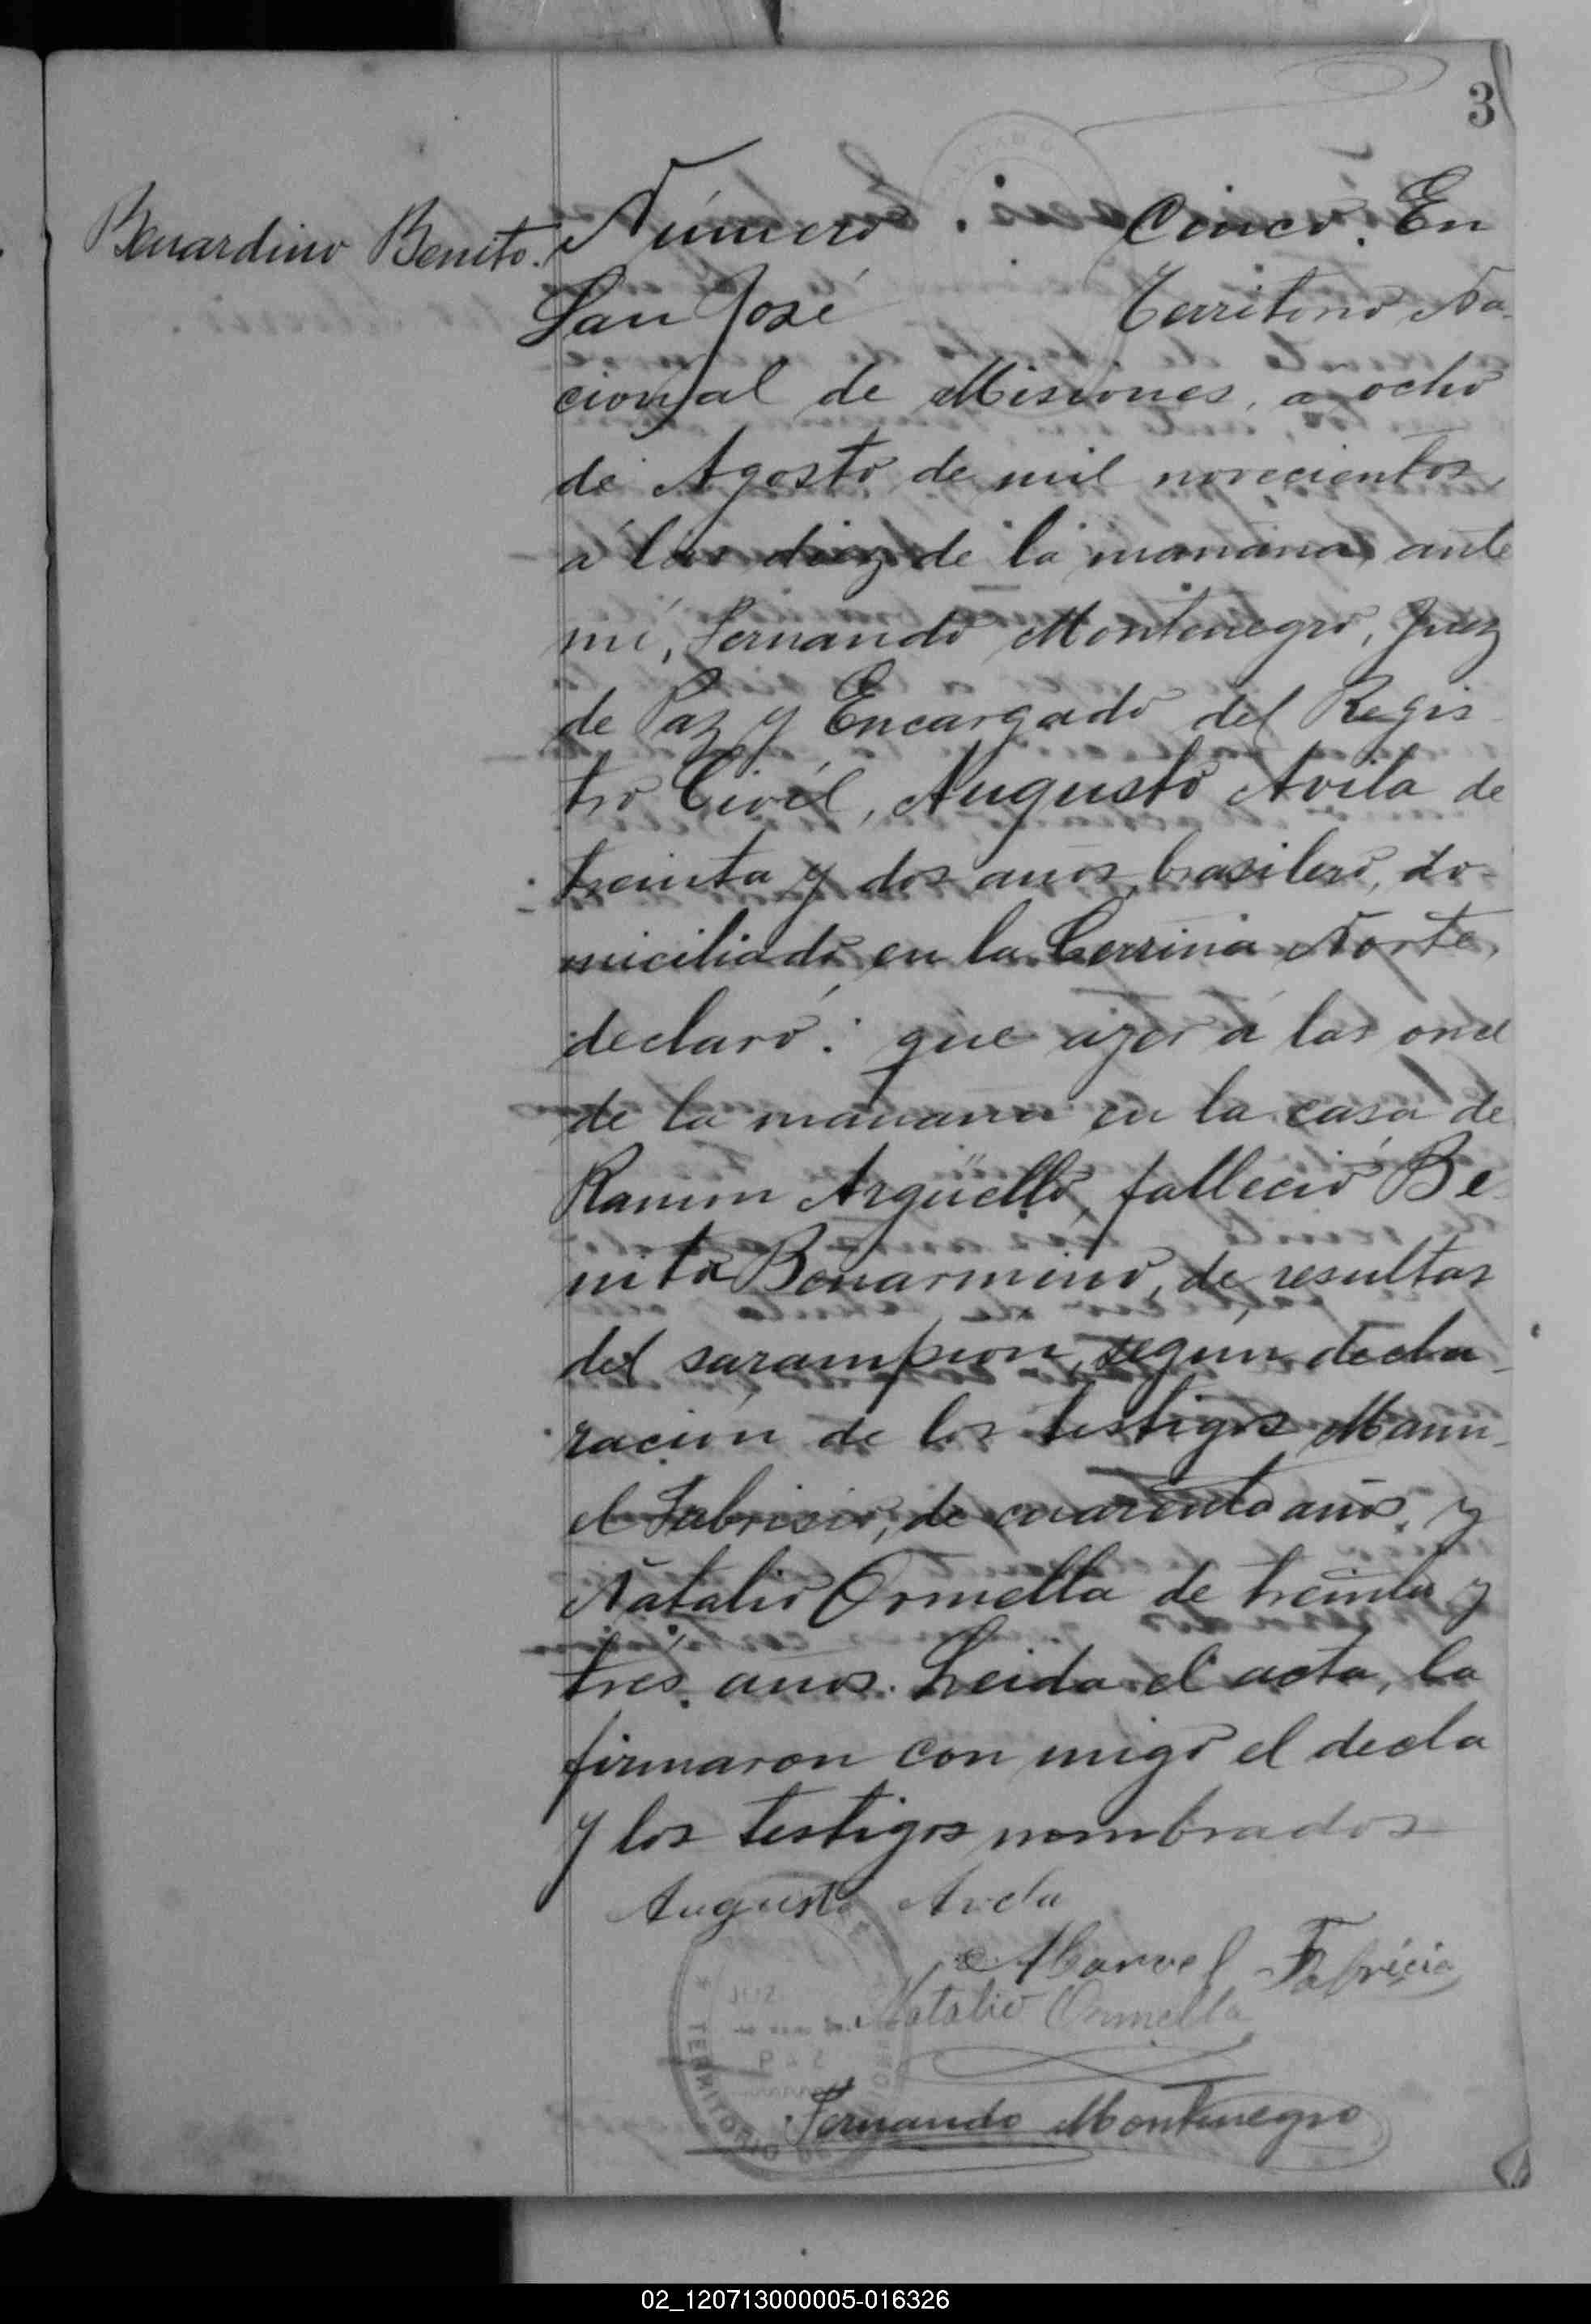 3
Benardino Benito.
Número Cinco. En
San José Territorio Na-
cional de Misiones, a ocho
de Agosto de mil novecientos,
á las diez de la mañana, ante
mi, Fernando Montenegro, Juez
de Paz y Encargado del Regis
tro Civíl, Augusto Avila de
treinta y dos años, brasilero, do-
miciliado en la Norte,
declaró: que ayer á las once
de la mañana en la casa de
Ramon Argüello, falleció Be
nito Benarmino, de resultas
del sarampion, según decla-
ración de los testigos Manu-
el Fabricio, de cuarenta años, y
Natalio Ormella de treinta y
tres años. Leida el acta, la
firmaron con migo el decla
y los testigos nombrados
Augusto
Manoel Fabricio
Natalio Ormella
TERRITORIO
Fernando Montenegro
02_120713000005-016326